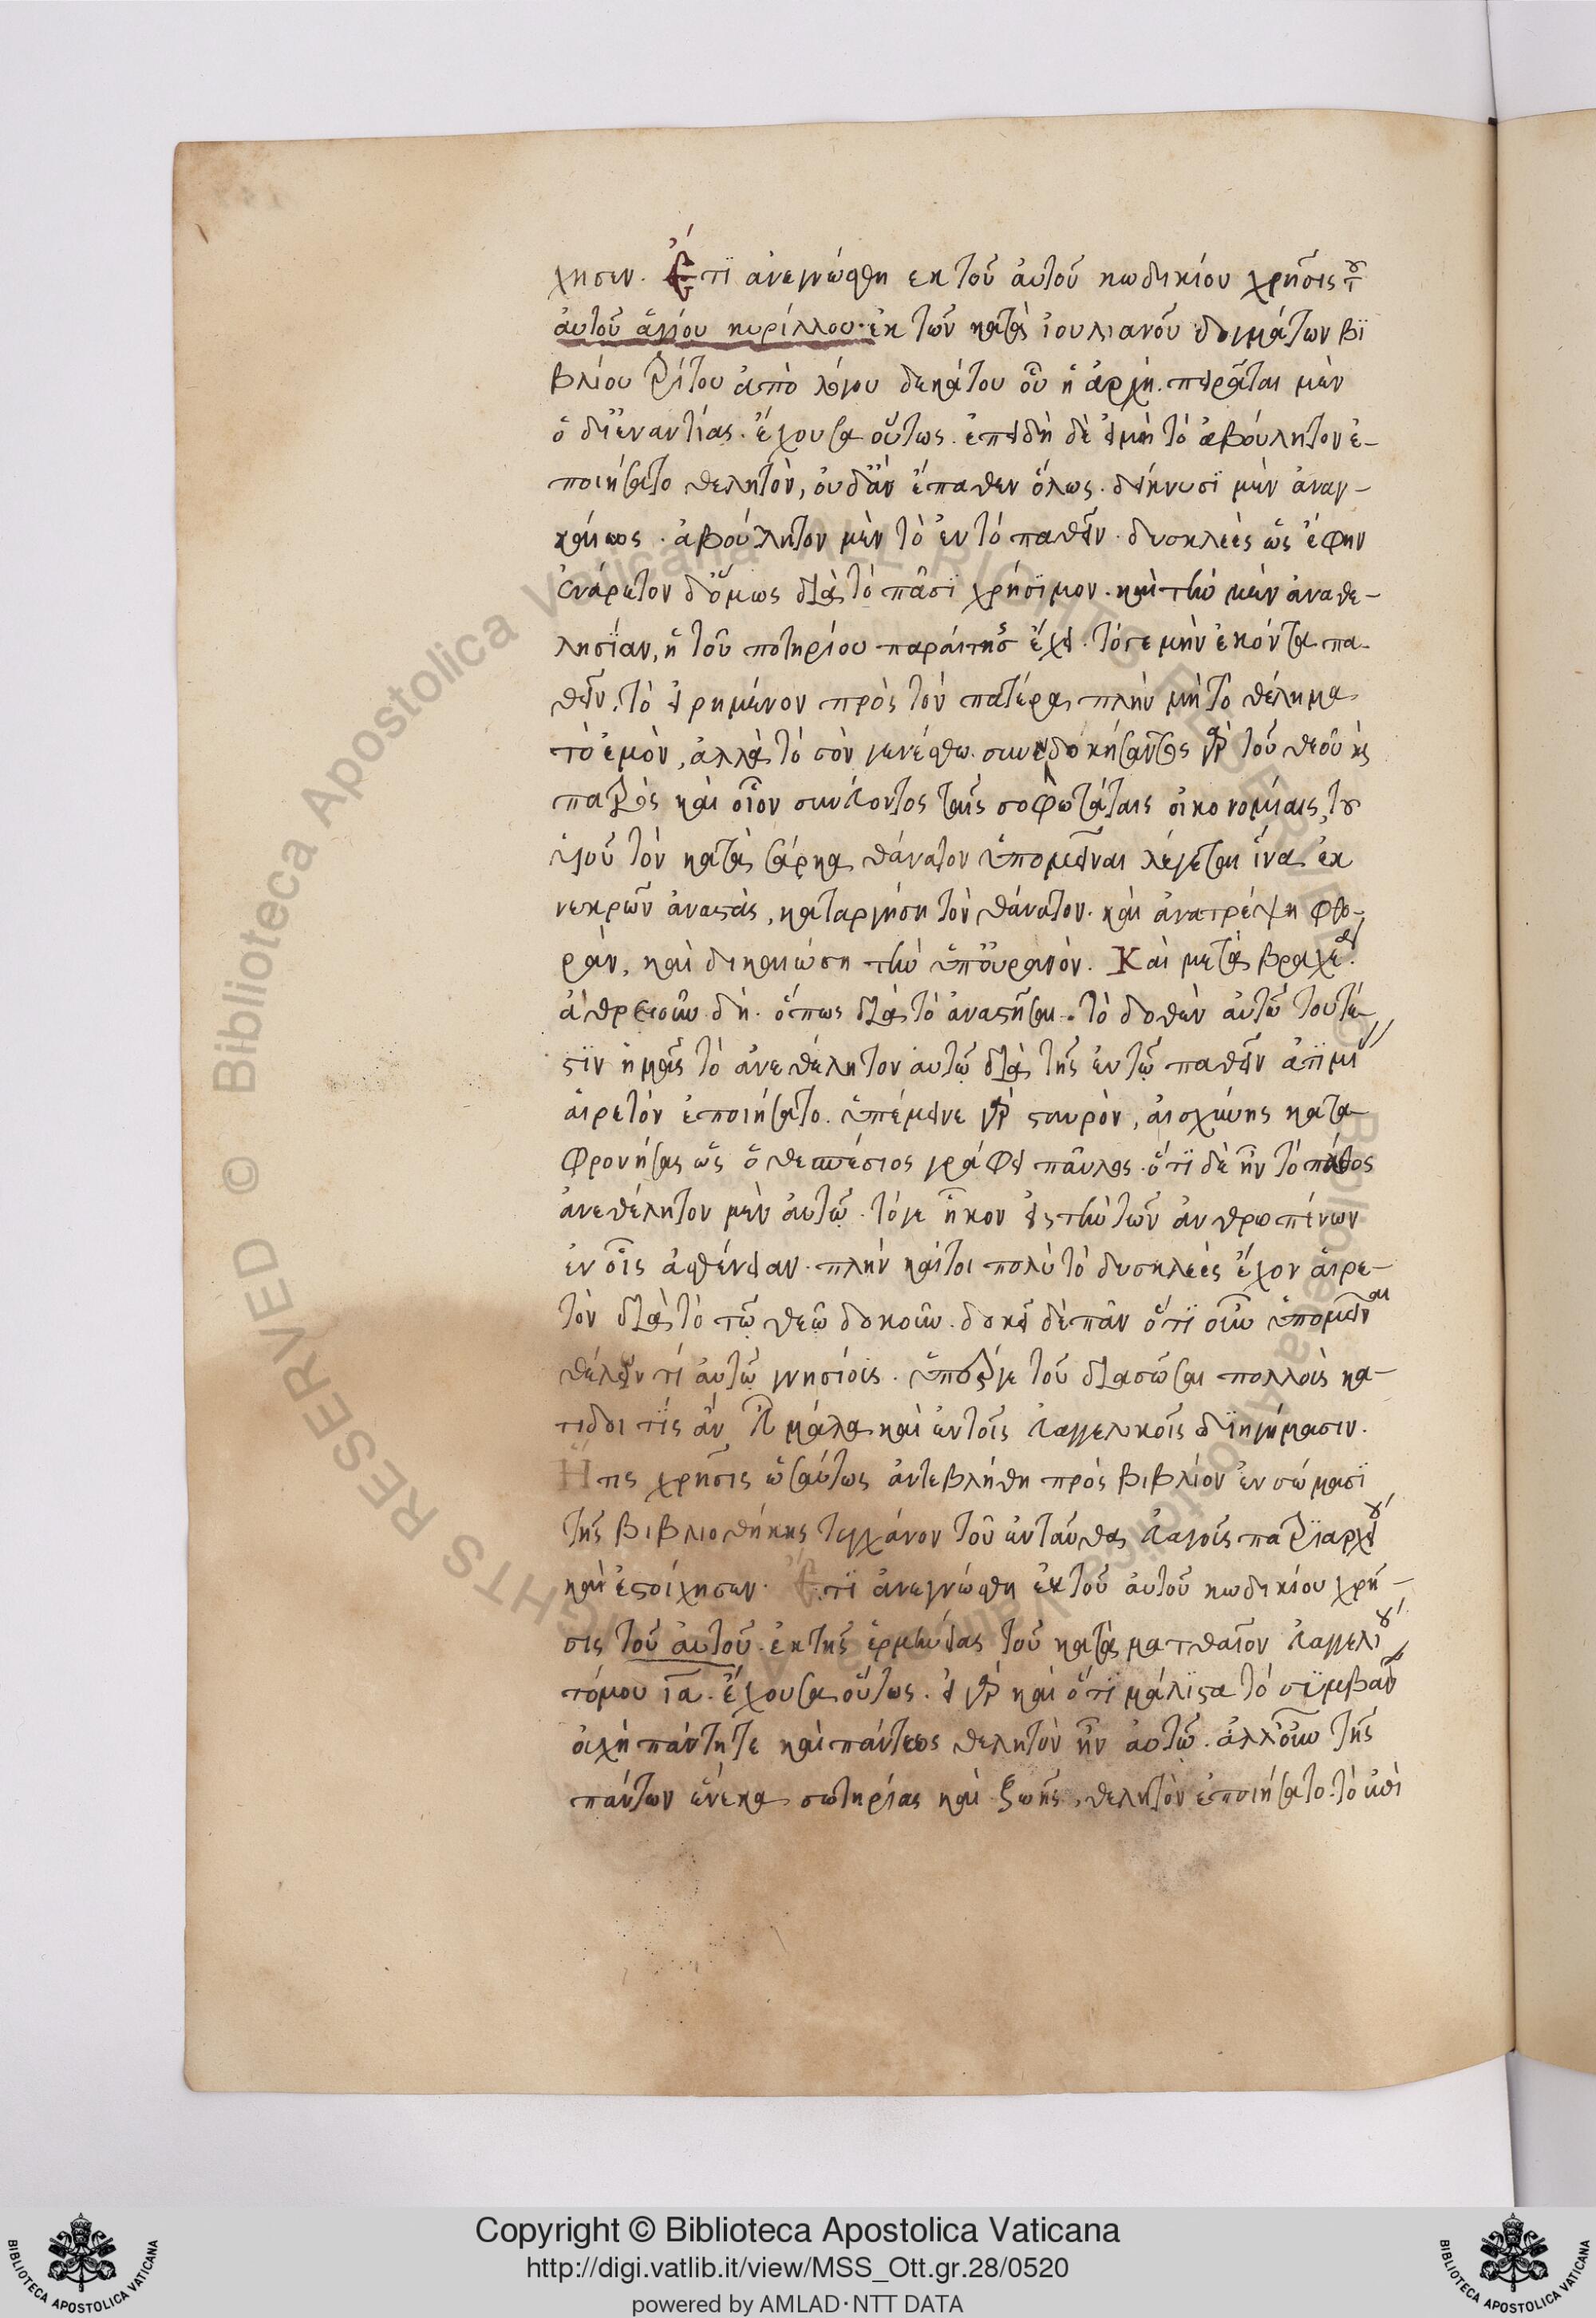 χησεν. Ἔτϊ ἀνεγνώσθη εκ τοῦ ἀυτοῦ κωδικίου χρῆσις τ
ἀυτοῦ ἁγίου κυρίλλου· ἐκ τῶν κατὰ ἰουλιανοῦ δογμάτων βϊ
βλίου τρίτου ἀπὸ λόγου δεκάτου οὗ ἡ ἀρχὴ. πειρᾶται μὲν
ὁ δϊεναντίας. ἔχουσα οὕτως. ἐπειδὴ δὲ εἰ μὴ τὸ ἀβούλητον ἐ-
ποιήσατο θελητὸν, ουδὰν ἔπαθεν ὅλως. δείκνυσϊ μὲν ἀναγ-
καίως. ἀβούλητον μὲν τὸ ἐν τό παθεῖν. δυσκλεὲς ὡς ἔφην
ἐνάρετον δ' ὅμως διὰ τὸ πᾶσϊ χρήσϊμον. καὶ τὴν μὲν ἀναθε-
λησίαν, ἡ τοῦ ποτηρίου παραίτησις ἔχει. τόσε μὴν ἑκόντα πα-
θεῖν. τὸ εἰρημένον πρὸς τὸν πατέρα πλὴν μὴ τὸ θέλημα
τὸ ἐμὸν, ἀλλὰ τὸ σὸν γενέσθω. συνευδοκήσαντος γὰρ τοῦ θεοῦ κς
πατρὸς καὶ οἷον συνεύοντος ταῖς σοφωτάταις οἰκονομίαις, του
υἱοῦ τὸν κατὰ σάρκα θάνατον ὑπομεῖναι λέγεται ἵνα ἐκ
νεκρῶν ἀναστὰς, καταργήση τὸν θάνατον. καὶ ἀνατρέψη φθο-
ρὰν, καὶ δικαιώση τὴν ὑπ' οὐρανὸν. Καὶ μετὰ βραχέα.
ἀθρει οὖν δὴ. ὅπως διὰ τὸ ἀναστῆσαι. τὸ δοθὲν ἀυτῶ τουτέ
στϊν ἡμᾶς τὸ ἀνεθέλητον ἀυτῷ διὰ τῆς ἐν τῷ παθεῖν ἀτϊμί
αἱρετόν ἐποιήσατο. ὑπέμεινε γὰρ σταυρὸν, ἀισχύνης κατα
φρονήσας ὡς ὁ θεσπέσιος γράφει παῦλος. ὅτϊ δὲ ἦν τὸ πάθος
ἀνεθέλητον μὲν ἀυτῷ. τόγε ἧκον εἰς τὴν τῶν ἀνθρωπίνων
ἐν οἷς ἀσθένειαν. πλὴν καίτοι πολὺ τὸ δυσκλεὲς ἔχον αἱρε-
τὸν διὰ τὸ τῷ θεῷ δοκοῦν. δοκεῖ δὲ πᾶν ὅτϊ οὖν ὑπομεῖναι
θέλειν τί ἀυτῷ γνησίοις. ὑπέργε τοῦ διασῶσαι πολλοὺς κα-
τιδοι τϊς ἂν εὖ μάλα καὶ ἐν τοῖς εὐαγγελικοῖς δϊηγήμασιν.
Ἥτις χρῆσις ὡσαύτως ἀντεβλήθη πρὸς βιβλίον ἐν σώμασϊ
τῆς βιβλιοθήκης τυγχάνον τοῦ ἐνταῦθα εὐαγοῦς πατρϊαρχείου
καὶ ἐστοίχησεν. Ἔτϊ ἀνεγνώσθη ἐκ τοῦ ἀυτοῦ κωδικίου χρῆ-
σις τοῦ ἀυτοῦ. ἐκ τῆς ἑρμηνείας τοῦ κατὰ ματθαῖον εὐαγγελίου
τόμου ια. ἔχουσα οὕτως. εἰ γὰρ καὶ ὅτϊ μάλϊστα τό σϋμβὰν
οὐχὴ πάντη τε καὶ πάντως θελητὸν ἦν ἀυτῷ. ἀλλ' οὖν τῆς
πάντων ἕνεκα σωτηρίας καὶ ζωῆς, θελητὸν ἐποιήσατο. τὸ ἐπὶ
Copyright © Biblioteca Apostolica Vaticana
http://digi.vatlib.it/view/MSS_Ott.gr.28/0520
powered by AMLAD·NTT DATA
BIBLIOTECA APOSTOLICA VATICANA
BIBLIOTECA APOSTOLICA VATICANA